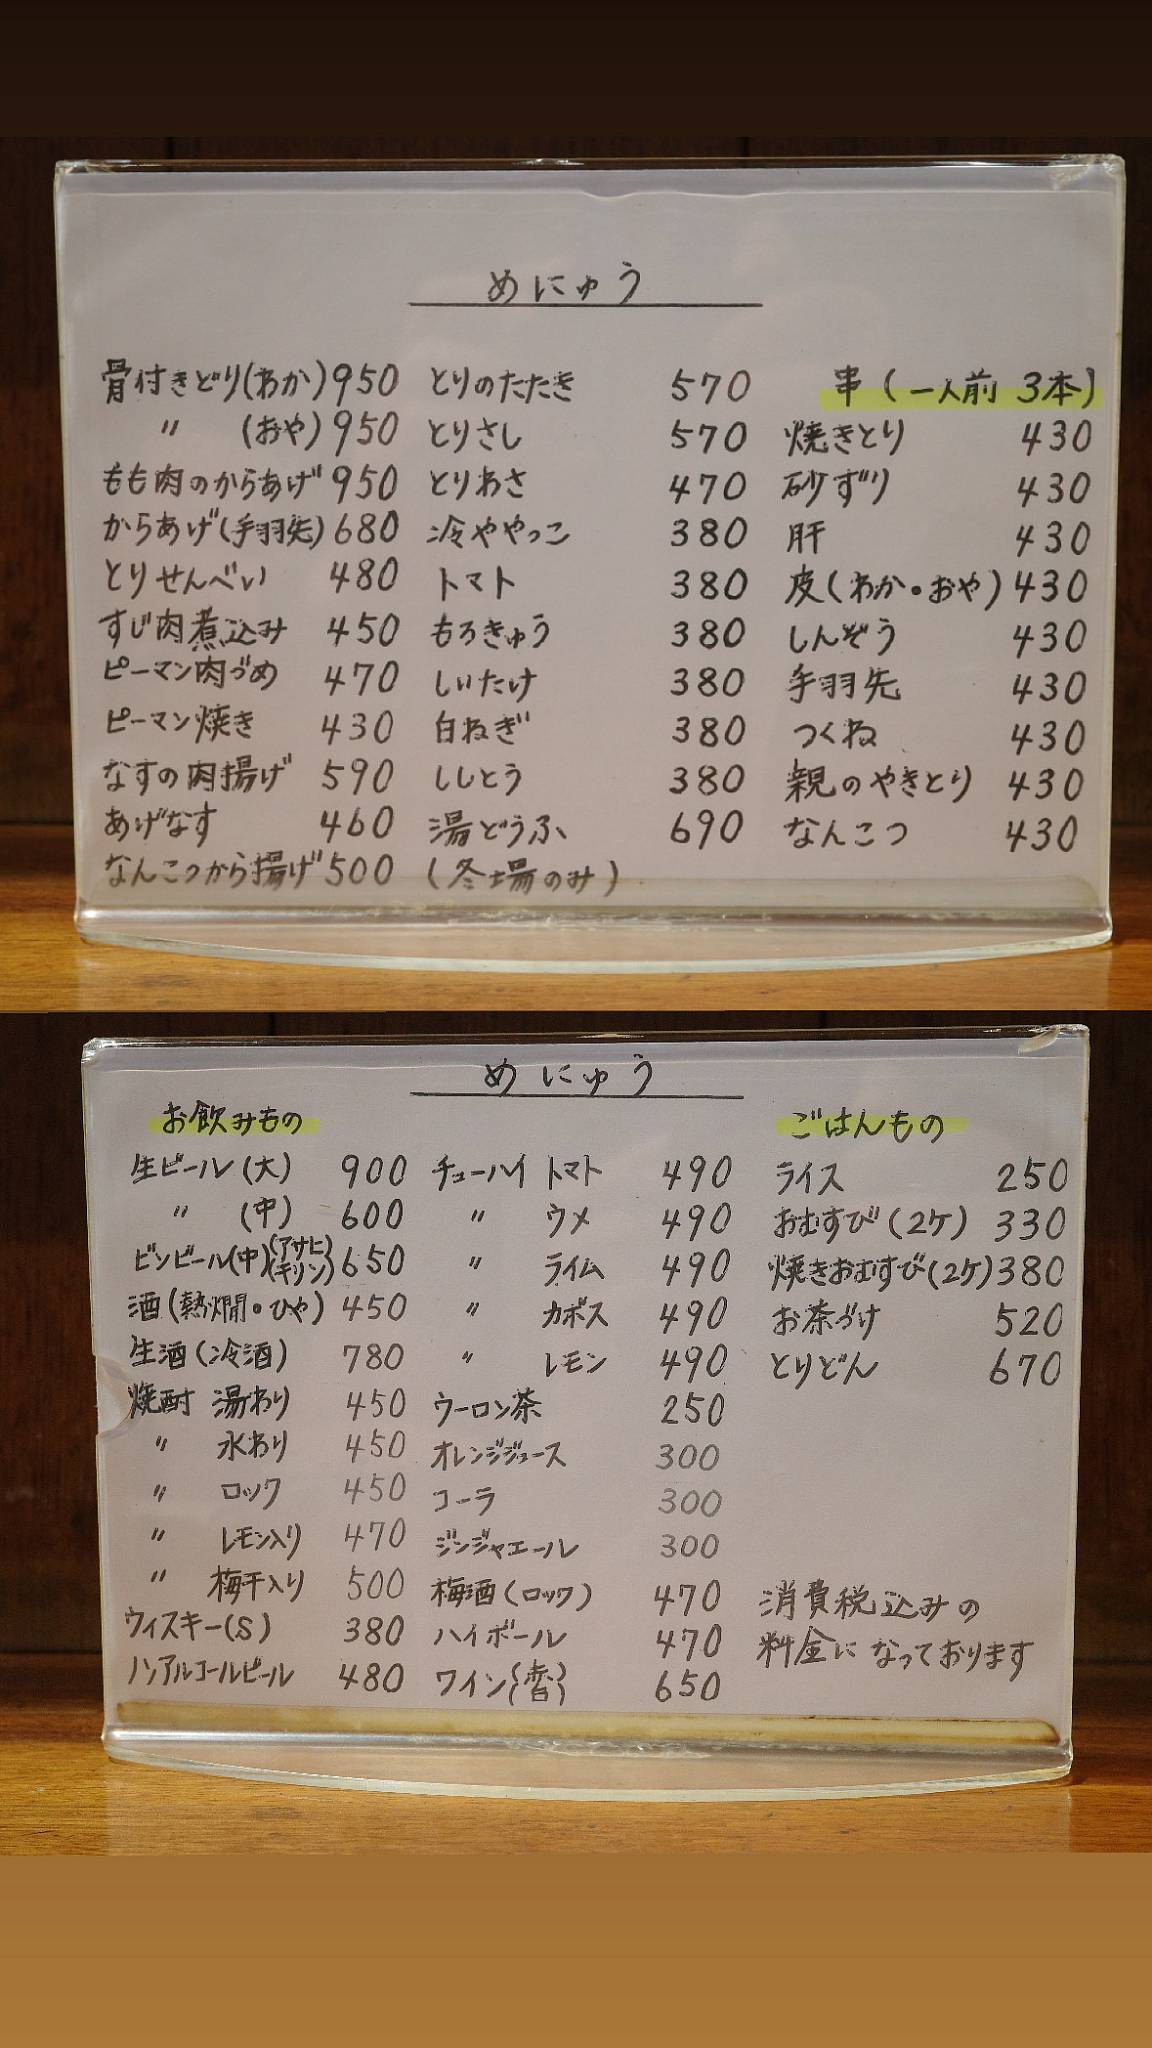 めにゅう
骨付きどり(わか) 950
〃 (おや) 950
もも肉のからあげ 950
からあげ(手羽先) 680
とりせんべい 480
すじ肉煮込み 450
ピーマン肉づめ 470
ピーマン焼き 430
なすの肉揚げ 590
あげなす 460
なんこつから揚げ 500
とりのたたき 570
とりさし 570
とりわさ 470
冷ややっこ 380
トマト 380
もろきゅう 380
しいたけ 380
白ねぎ 380
ししとう 380
湯どうふ 690
(冬場のみ)
串(一人前 3本)
焼きとり 430
砂ずり 430
肝 430
皮(わか・おや) 430
しんぞう 430
手羽先 430
つくね 430
親のやきとり 430
なんこつ 430
めにゅう
お飲みもの
生ビール(大) 900
〃 (中) 600
ビンビール(中)(アサヒ キリン) 650
酒(熱燗・ひや) 450
生酒(冷酒) 780
焼酎 湯わり 450
〃 水わり 450
〃 ロック 450
〃 レモン入り 470
〃 梅干入り 500
ウィスキー(S) 380
ノンアルコールビール 480
チューハイ トマト 490
〃 ウメ 490
〃 ライム 490
〃 カボス 490
〃 レモン 490
ウーロン茶 250
オレンジジュース 300
コーラ 300
ジンジャエール 300
梅酒(ロック) 470
ハイボール 470
ワイン{赤 白} 650
ごはんもの
ライス 250
おむすび(2ケ) 330
焼きおむすび(2ケ) 380
お茶づけ 520
とりどん 670
消費税込みの
料金になっております